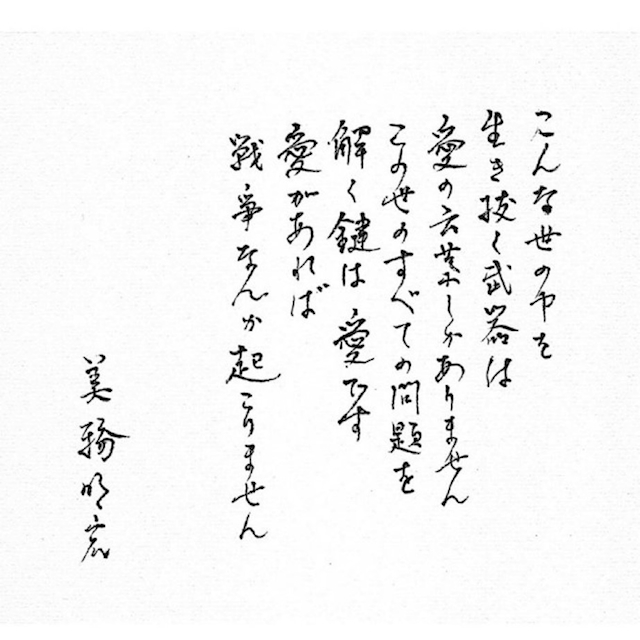 こんな世の中を
生き抜く武器は
愛の言葉しかありません
この世のすべての問題を
解く鍵は愛です
愛があれば
戦争なんか起こりません
美輪明宏